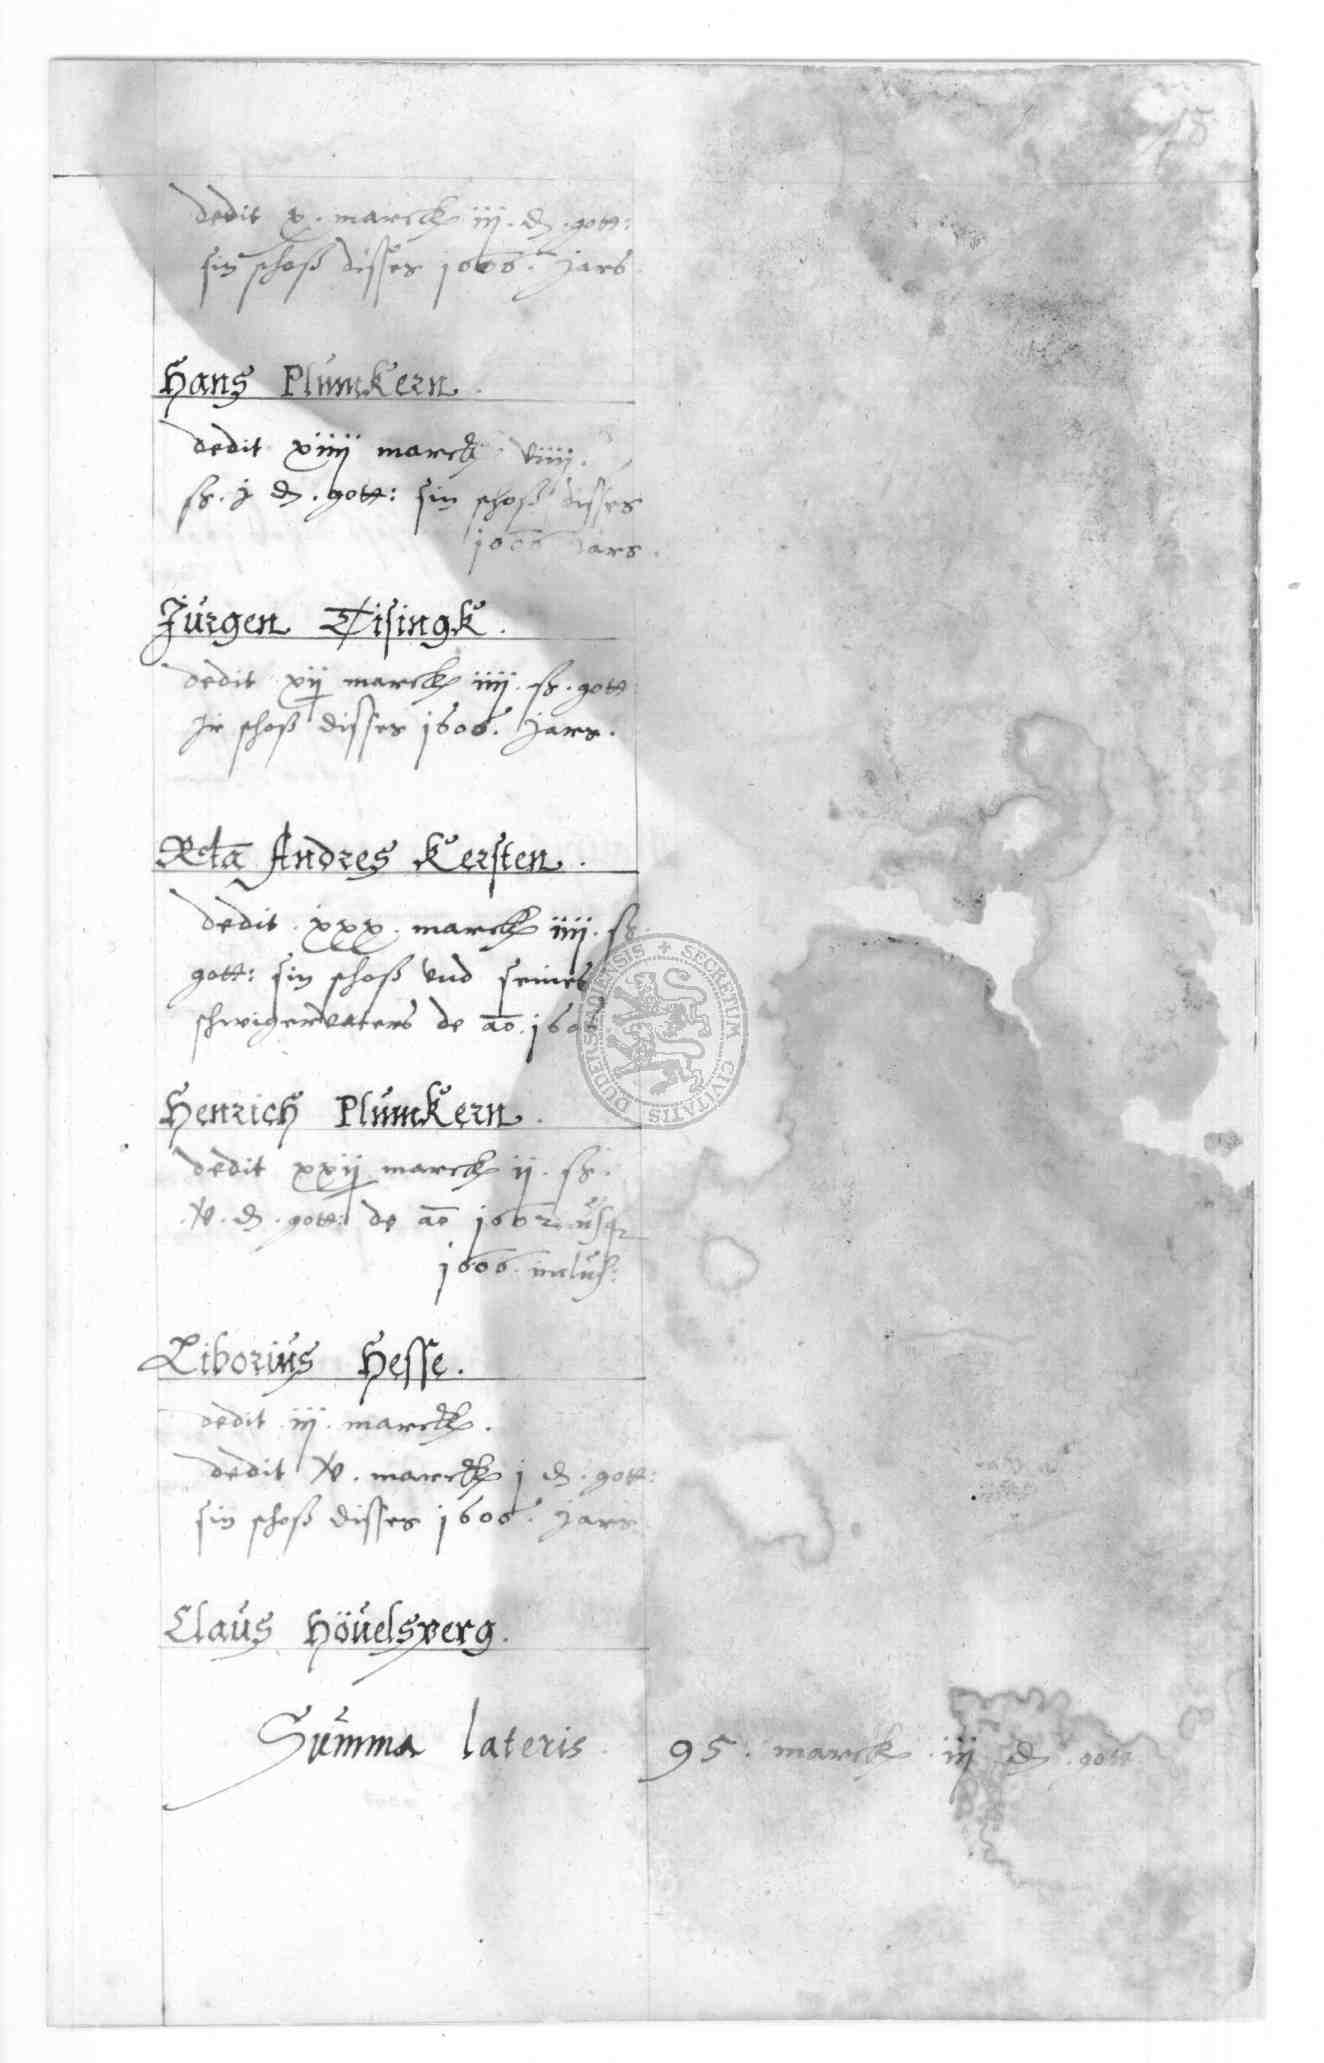 15
dedit x. marck iij. ₰. gott:
sin schoß disses 1606. Jars
Hans Plumkern.
dedit xiiij marck viiij.
ß. j ₰. gott: sin schoß disses
1606 Jars.
Jürgen Tisingk.
dedit xij marck iiij. ß. gott:
Jr schoß disses 1606. Jars.
Rcta Andres Kersten.
dedit. xxx. marck iiij. ß.
gott: sin schoß vnd seines
schwigervaters de ao. 1606
Henrich Plumkern.
dedit xxij marck ij. ß.
v. ₰. gott: de ao 1602. usq
1606. inclus:
Liborius Hesse.
dedit iij. marck.
dedit v. marck j ₰. gott:
sin schoß disses 1606. Jars
Claus Hövelsberg.
Summa lateris 95. marck iij ₰. gott
DUDERSTADIENSIS + SECRETUM CIVITATIS